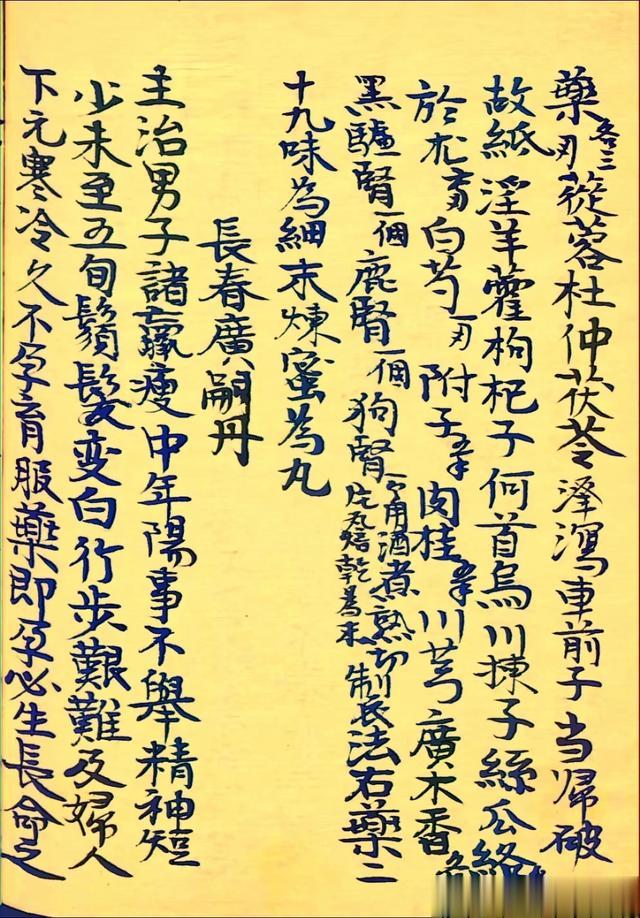 藥各三刄蓯蓉杜仲茯苓澤瀉車前子当帰破
故紙淫羊藿枸杞子何首烏川揀子絲瓜絡
於朮白芍刄附子肉桂川芎廣木香
黑驢腎一個鹿腎一個狗腎用酒煮熟切片瓦焙乾為末制長法右藥二
十九味為細末煉蜜為丸
長春廣嗣丹
主治男子諸羸瘦中年陽事不舉精神短
少未至五旬鬚髮变白行步艱難及婦人
下元寒冷久不孕育服藥即孕必生長命之